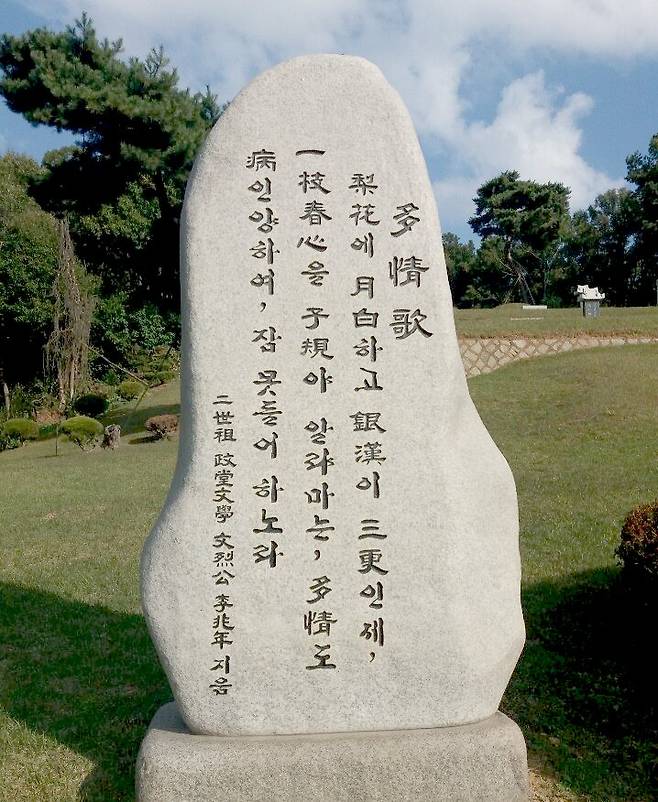 多情歌
梨花에 月白하고 銀漢이 三更인제,
一枝春心을 子規야 알랴마는, 多情도
病인양하여, 잠 못들어 하노라
二世祖 政堂文學 文烈公 李兆年 지음